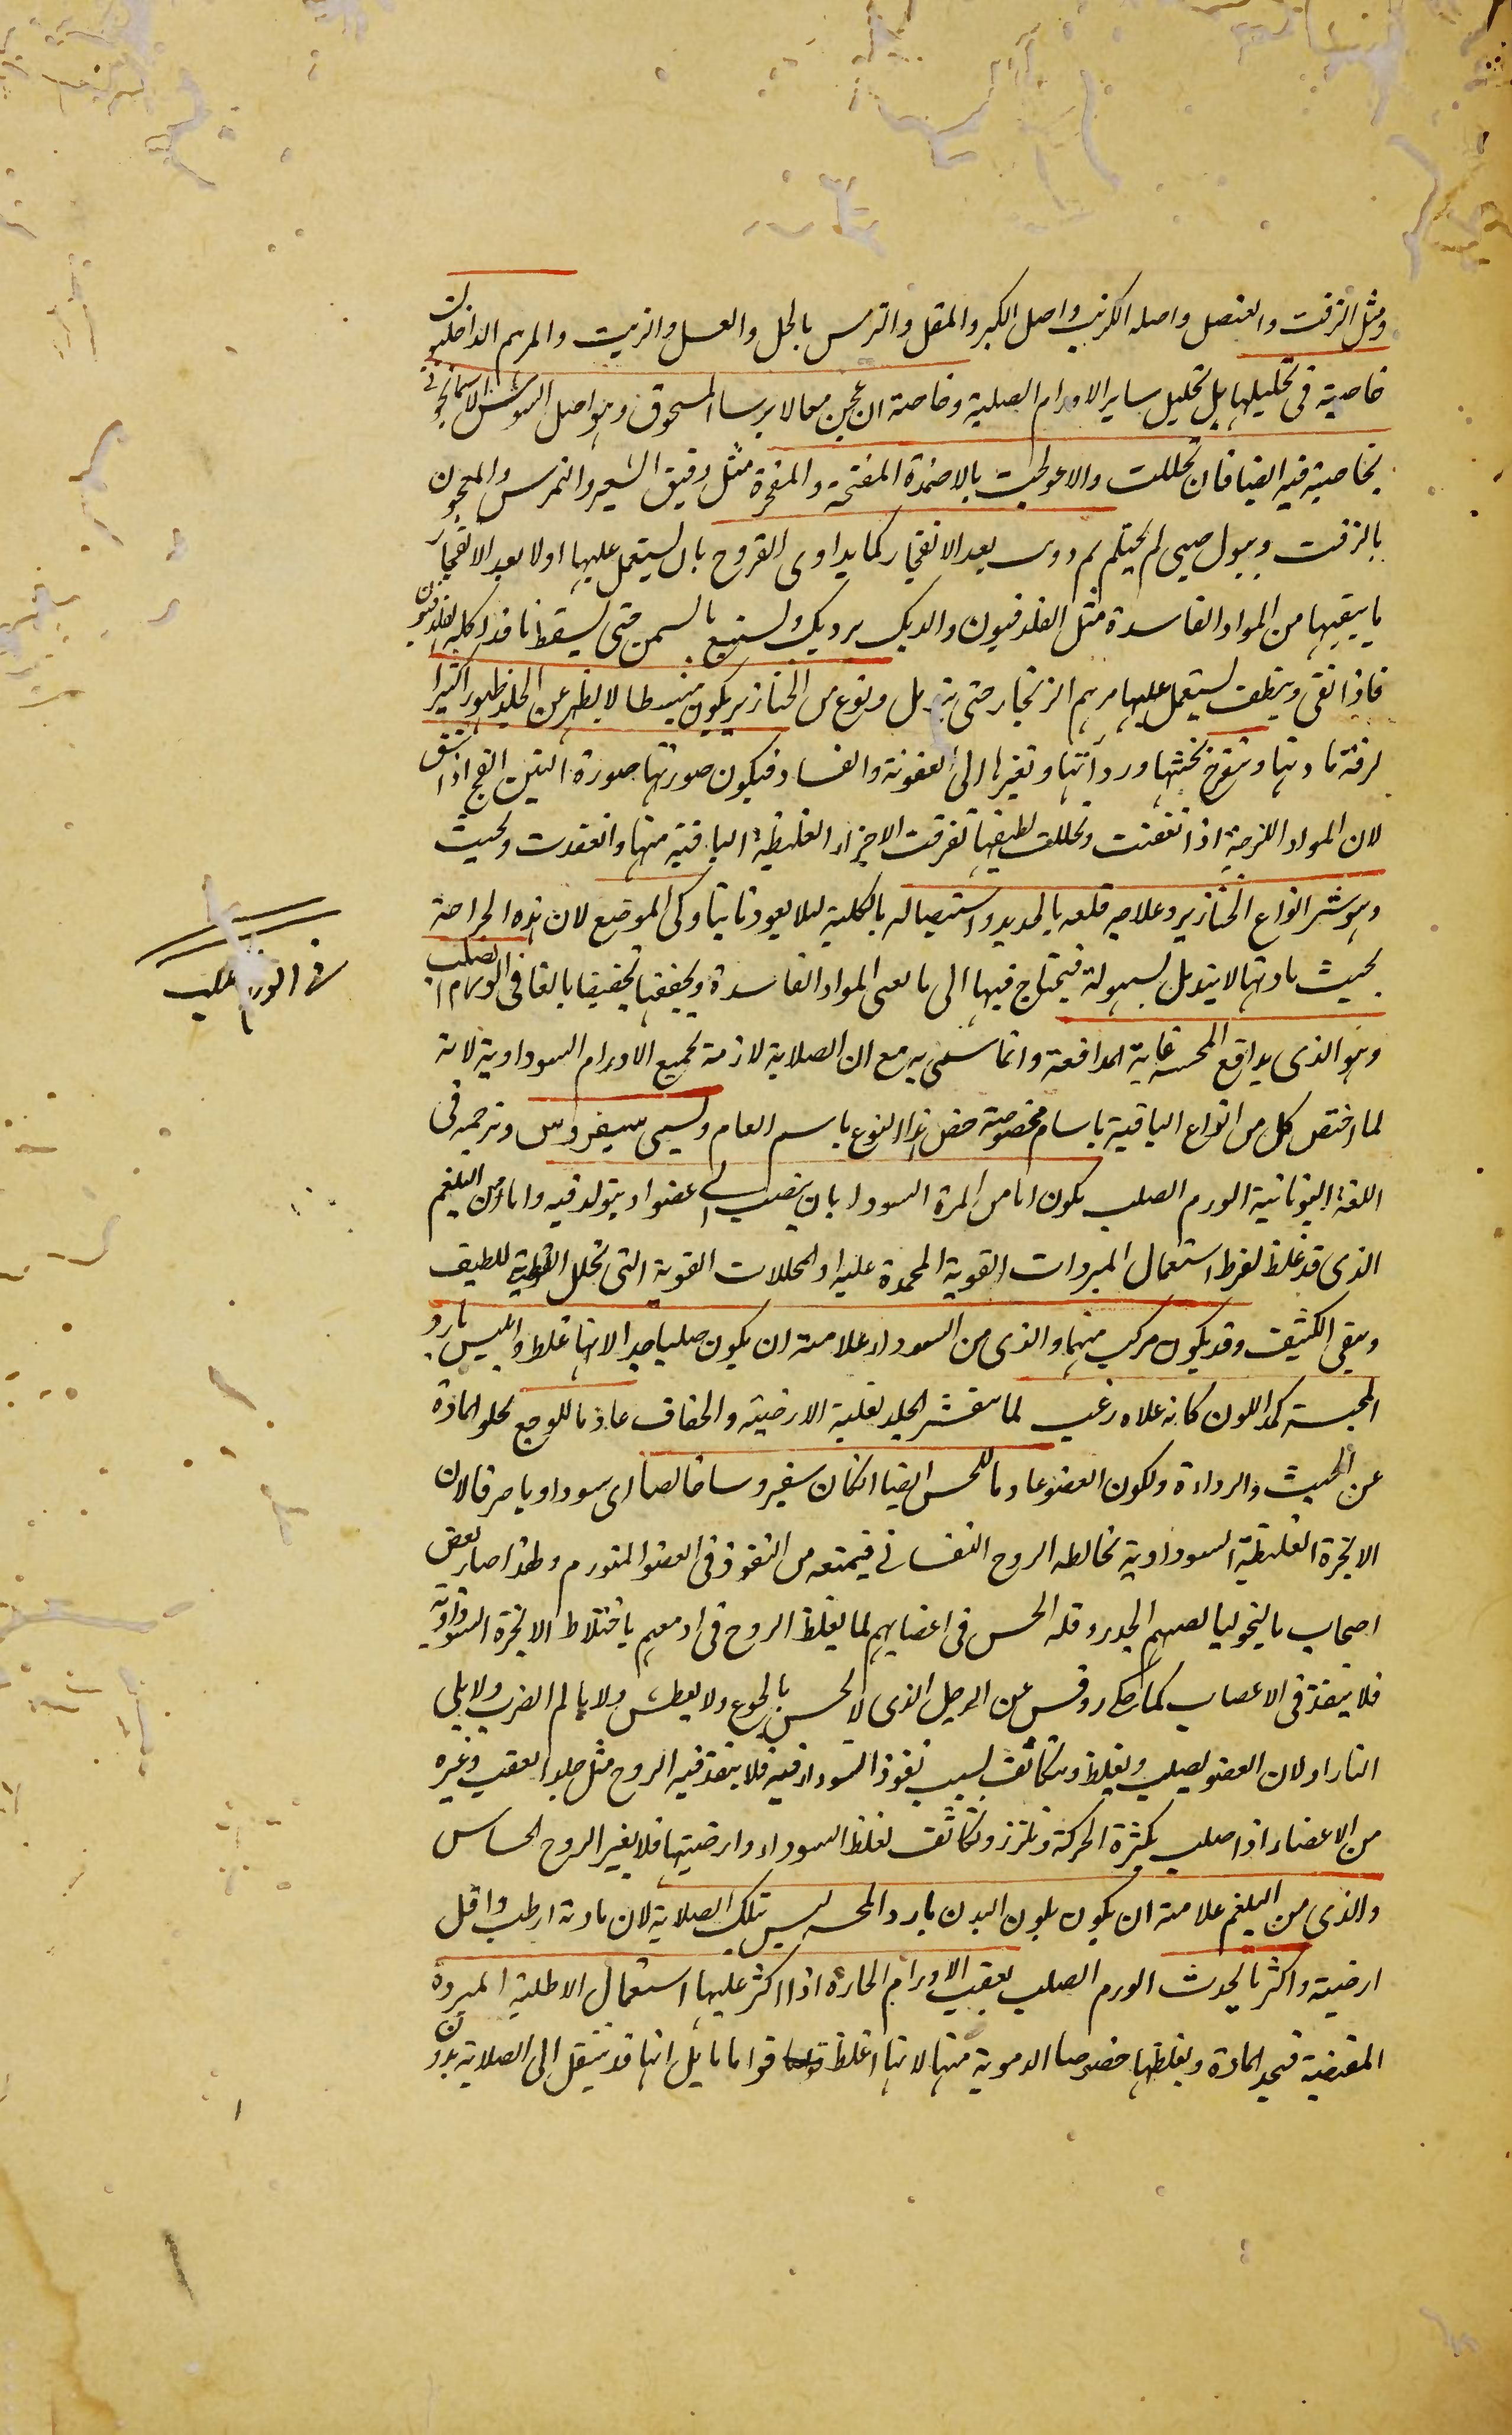 ومثل الزفت والعنصل واصله الكرنب واصل الكبر والمقل والترمس بالخل والعسل والزيت والمرهم الداخليون
خاصية فى تحليلها بل تحليل ساير الاورام الصلبة وخاصة ان عجن معه الايرسا المسحوق وهو اصل السوسن الاسمانجونى
بخاصية فيه ايضا فان تحللت والا عولجت بالاضمدة المفتحة والمفجرة مثل دقيق الشعير والترمس والمعجون
بالزفت وببول صبى لم يحتلم ثم دووى بعد الانفجار كما يداوى القروح بان يستعمل عليها اولا بعد الانفجار
ما ينقيها من المواد الفاسدة مثل الفلدفيون والديك برديك ولسع بالسمن حتى يسقط ما قد اكله الفلدفيون
فاذا نقى ونظف يستعمل عليها مرهم الزنجار حتى يندمل ونوع من الخنازير يكون منبسطا لا يظهر عن الجلد ظهورا كثيرا
لرقة مادتها وتتقرح لخبثها ورداءتها وتغيرها الى العفونة والفساد فيكون صورتها صورة التين الفج اذا انشق
لان المواد اللزجة اذا تعفنت وتحللت لطيفها تفرقت الاجزاء الغليظة الباقية منها وانعقدت وتحيت
وهو شر انواع الخنازير وعلاجه قلعه بالحديد واستيصاله بالكلية ليلا يعود ثانيا وكى الموضع لان هذه الجراحة
بخبث مادتها لا يندمل بسهولة فيحتاج فيها الى ما يفنى المواد الفاسدة ويجففها تجفيفا بالغا فى الورم الصلب
وهو الذى يدافع المجسة غاية المدافعة وانما سمى به مع ان الصلابة لازمة لجميع الاورام السوداوية لانه
لما اختص كل من انواع الباقية باسام مخصوصة خص هذا النوع باسم العام ويسمى سيفروس وترجمه فى
اللغة اليونانية الورم الصلب يكون اما من المرة السودا بان ينصب الى عضو او يتولد فيه واما من البلغم
الذى قد غلظ لفرط استعمال المبردات القوية المجمدة عليه او المحللات القوية التى تحلل اللطيف
ويبقى الكثيف وقد يكون مركب منهما والذى من السوداء علامته ان يكون صلبا جدا لانها اغلظ وايبس بارد
المجسة كمد اللون كانه علاه زغب لما يتقشر الجلد لغلبة الارضية والجفاف عادما للوجع لخلو المادة
عن الخبث والرداءة ولكون العضو عادما للحس ايضا ان كان سقيروسا خالصا اى سوداويا صرفا لان
الابخرة الغليظة السوداوية تخالطه الروح النفسانى فيمنعه من النفوذ فى العضو المتورم ولهذا صار بعض
اصحاب ماليخوليا يصيبهم الخدر وقلة الحس فى اعضايهم لما يغلظ الروح فى ادمغتهم باختلاط الابخرة السوداوية
فلا ينفذ فى الاعصاب كما حكى روفس عن الرجل الذى لا يحس بالجوع ولا بعطش ولا بالم الضرب ولا بكى
النار او لان العضو يصلب ويغلظ ويتكاثف بسبب نفوذ السوداء فيه فلا ينفذ فيه الروح مثل جلد العقب وغيره
من الاعضاء اذا صلب بكثرة الحركة وتلزز وتكاثف لغلظ السوداء وارضيتها فلا يغير الروح الحساس
والذى من البلغم علامته ان يكون بلون البدن بارد المجسة ليس بتلك الصلابة لان مادته ارطب واقل
ارضية واكثر ما يحدث الورم الصلب بعقب الاورام الحارة اذا اكثر عليها استعمال الاطلية المبردة
المقبضة فيجمد المادة ويغلظها خصوصا الدموية منها لانها اغلظ قواما بل انها قد ينتقل الى الصلابة بدون
فى الورم الصلب